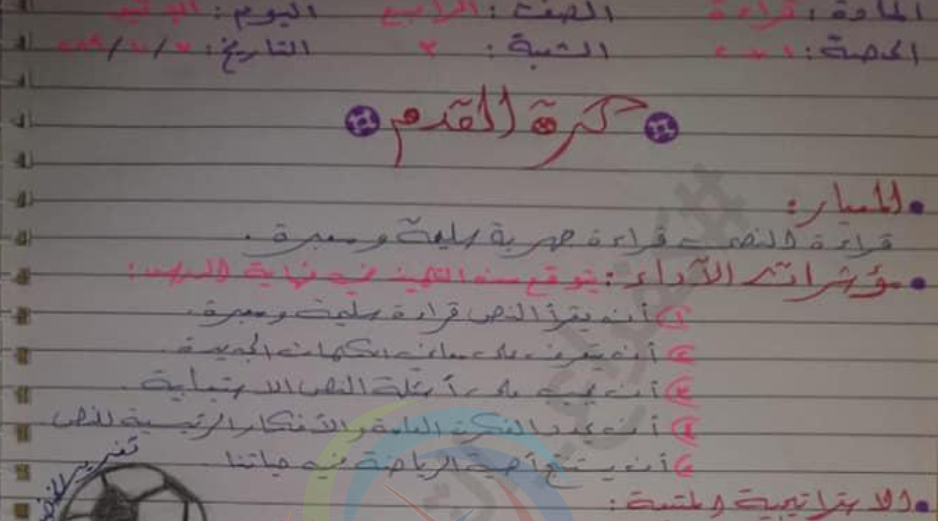 المادة: قراءة الصف: الرابع اليوم: الإثنين
الحصة: الشعبة: التاريخ:
كرة القدم
المعيار:
قراءة النص قراءة جهرية سليمة ومعبرة.
مؤشرات الأداء: يتوقع من التلميذ في نهاية الدرس:
١) أن يقرأ النص قراءة سليمة ومعبرة.
٢) أن يتعرف على معاني الكلمات الجديدة.
٣) أن يجيب على أسئلة النص الاستيعابية.
٤) أن يحدد الفكرة العامة والأفكار الرئيسية للنص
٥) أن يستنتج أهمية الرياضة في حياتنا.
الاستراتيجية المتبعة: